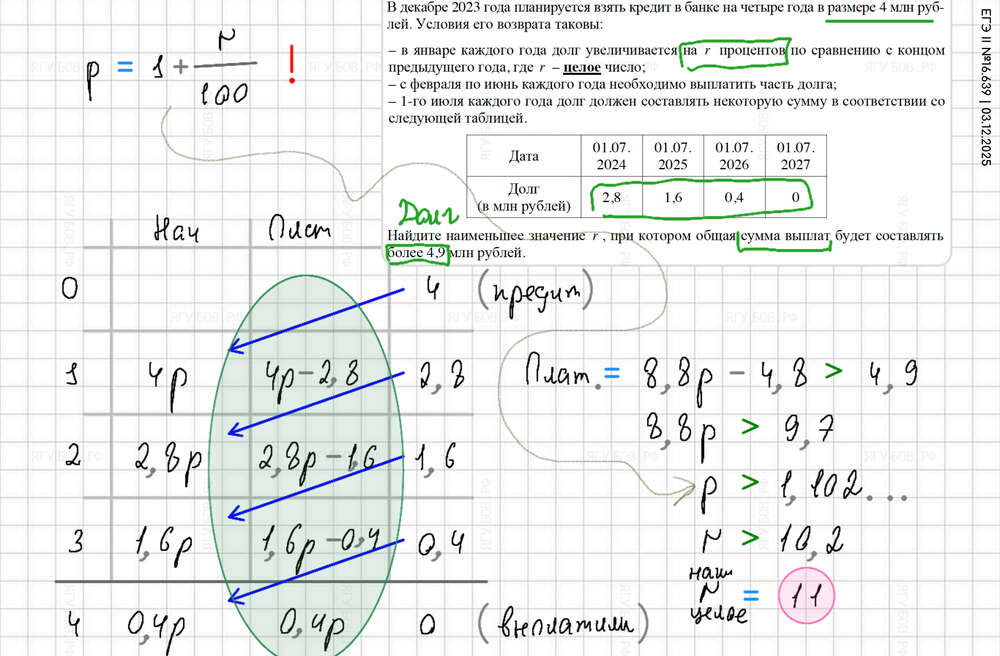 В декабре 2023 года планируется взять кредит в банке на четыре года в размере 4 млн руб-
лей. Условия его возврата таковы:
– в январе каждого года долг увеличивается на r процентов по сравнению с концом
предыдущего года, где r – целое число;
– с февраля по июнь каждого года необходимо выплатить часть долга;
– 1-го июля каждого года долг должен составлять некоторую сумму в соответствии со
следующей таблицей.
Дата 01.07. 2024 01.07. 2025 01.07. 2026 01.07. 2027
Долг (в млн рублей) 2,8 1,6 0,4 0
Найдите наименьшее значение r, при котором общая сумма выплат будет составлять
более 4,9 млн рублей.
ЕГЭ II №16.639 | 03.12.2025
p = 1 + r/100 !
Нач Плат Долг
0 4 (кредит)
1 4p 4p-2,8 2,8
2 2,8p 2,8p-1,6 1,6
3 1,6p 1,6p-0,4 0,4
4 0,4p 0,4p 0 (выплатили)
Плат. = 8,8p - 4,8 > 4,9
8,8p > 9,7
p > 1,102...
r > 10,2
наим
r = 11
целое
ЯГУБОВ.РФ